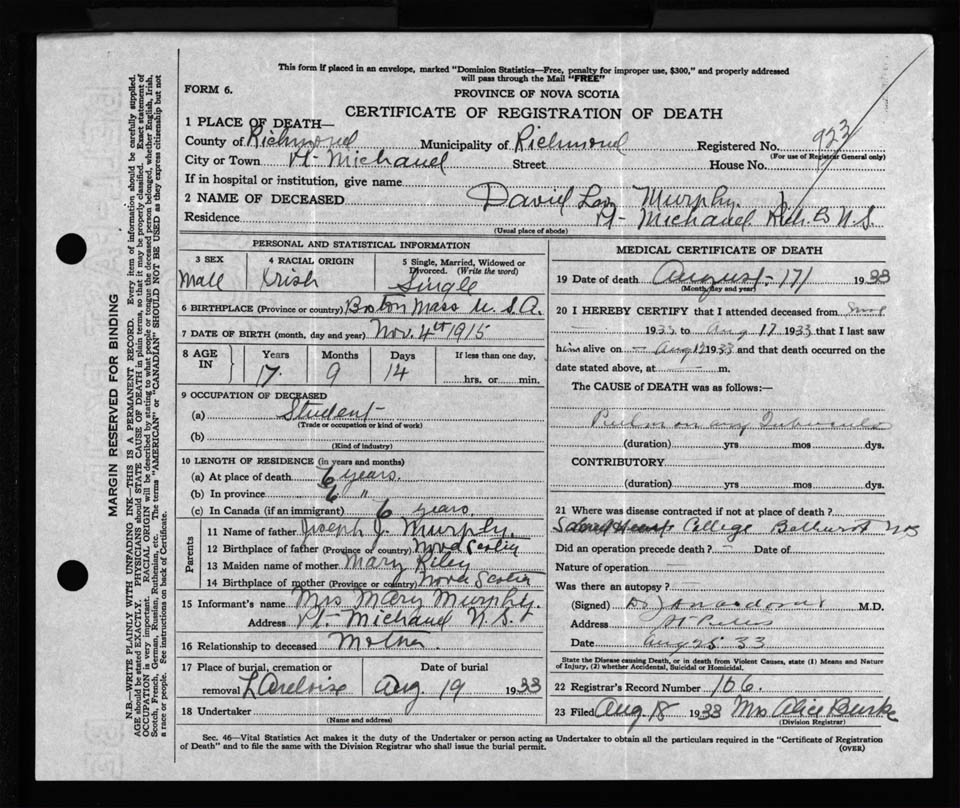 This form if placed in an envelope, marked "Dominion Statistics—Free, penalty for improper use, $300," and properly addressed
will pass through the Mail "FREE"
FORM 6.
PROVINCE OF NOVA SCOTIA
CERTIFICATE OF REGISTRATION OF DEATH
1 PLACE OF DEATH—
County of Richmond Municipality of Richmond Registered No. 923
(For use of Registrar General only)
City or Town Pt- Michaud Street House No.
If in hospital or institution, give name
2 NAME OF DECEASED David Murphy.
Residence Pt- Michaud N.S.
(Usual place of abode)
PERSONAL AND STATISTICAL INFORMATION
3 SEX
Male
4 RACIAL ORIGIN
Irish
5 Single, Married, Widowed or
Divorced. (Write the word)
Single
6 BIRTHPLACE (Province or country) Boston Mass U.S.A.
7 DATE OF BIRTH (month, day and year) Nov. 4th 1915
8 AGE
IN
Years Months Days If less than one day,
17. 9 14
hrs. or min.
9 OCCUPATION OF DECEASED
(a) Student
(Trade or occupation or kind of work)
(b)
(Kind of industry)
10 LENGTH OF RESIDENCE (in years and months)
(a) At place of death 6 years.
(b) In province 6 "
(c) In Canada (if an immigrant) 6 years.
Parents
11 Name of father Joseph J. Murphy.
12 Birthplace of father (Province or country) Nova Scotia
13 Maiden name of mother Mary Riley
14 Birthplace of mother (Province or country) Nova Scotia
15 Informant's name Mrs Mary Murphy.
Address Pt- Michaud N.S.
16 Relationship to deceased Mother.
17 Place of burial, cremation or Date of burial
removal L'Ardoise Aug. 19 1933
18 Undertaker
(Name and address)
MEDICAL CERTIFICATE OF DEATH
19 Date of death August- 17 1933
(Month, day and year)
20 I HEREBY CERTIFY that I attended deceased from
1933 to Aug 17 1933 that I last saw
him alive on Aug 17 1933 and that death occurred on the
date stated above, at m.
The CAUSE of DEATH was as follows:—
Pulmonary Tuberculosis
(duration) yrs mos dys.
CONTRIBUTORY
(duration) yrs mos dys.
21 Where was disease contracted if not at place of death?
Sacred Heart College Bathurst NB
Did an operation precede death? – Date of
Nature of operation
Was there an autopsy? –
(Signed) Dr M.D.
Address St Peters
Date Aug 25 33
State the Disease causing Death, or in death from Violent Causes, state (1) Means and Nature
of Injury, (2) whether Accidental, Suicidal or Homicidal.
22 Registrar's Record Number 106.
23 Filed Aug 18 1933 Mrs Alice Burke
(Division Registrar)
Sec. 46—Vital Statistics Act makes it the duty of the Undertaker or person acting as Undertaker to obtain all the particulars required in the "Certificate of Registration
of Death" and to file the same with the Division Registrar who shall issue the burial permit.
(OVER)
MARGIN RESERVED FOR BINDING
N.B.—WRITE PLAINLY WITH UNFADING INK—THIS IS A PERMANENT RECORD. Every item of information should be carefully supplied.
AGE should be stated EXACTLY. PHYSICIANS should STATE CAUSE OF DEATH in plain terms, so that it may be properly classified. Exact statement of
OCCUPATION is very important. RACIAL ORIGIN will be described by stating to what people or tongue the deceased person belonged, whether English, Irish,
Scotch, French, German, Russian, Ruthenian, etc. The terms "AMERICAN" or "CANADIAN" SHOULD NOT BE USED as they express citizenship but not
a race or people. See instructions on back of Certificate.